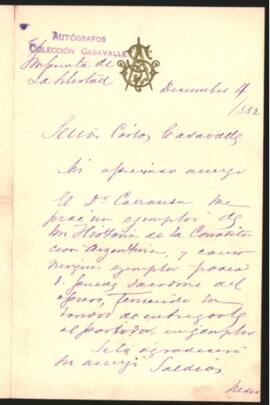 AUTÓGRAFOS
COLECCIÓN CASAVALLE
Imprenta de
La libertad
Diciembre 4
1882
Señor Cárlos Casavalle
Mi apreciado amigo
El Dr. me
pide un ejemplar de
la Historia de la Constitu-
cion Argentina, y como
ningun ejemplar
puede sacarme del
apuro, teniendo la
bondad de entregarle
al portador un ejemplar
Se lo agradecerá
su amigo Saldías